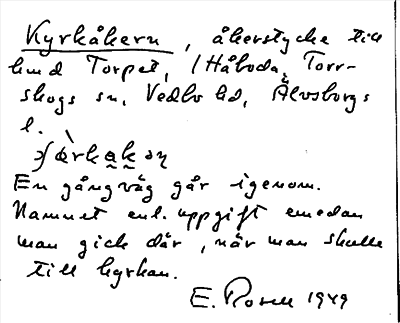 Kyrkåkern, åkerstycke till
hmd Torpet, (Håboda, Torr-
skogs sn, Vedbo hd, Älvsborgs
l.
En gångväg går igenom.
Namnet enl. uppgift emedan
man gick där, när man skulle
till kyrkan.
E. Rosell 1949